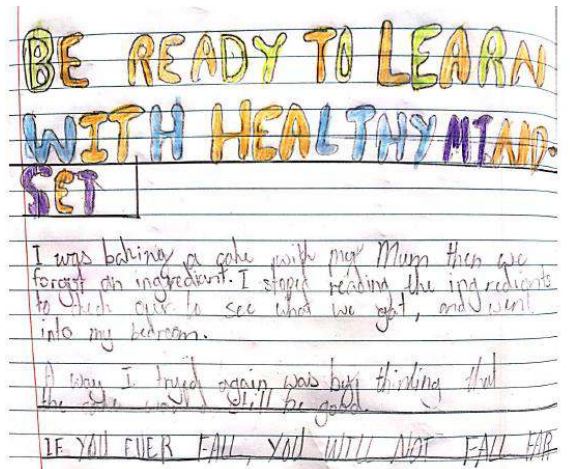 BE READY TO LEARN
WITH HEALTHY MIND-
SET
I was baking a cake with my Mum then we
forgot an ingrediant. I stoped reading the ingredients
to see what we got, and went
into my bedroom.
A way I tryed again was by thinking that
the still be good.
IF YOU EVER FALL, YOU WILL NOT FALL FAR